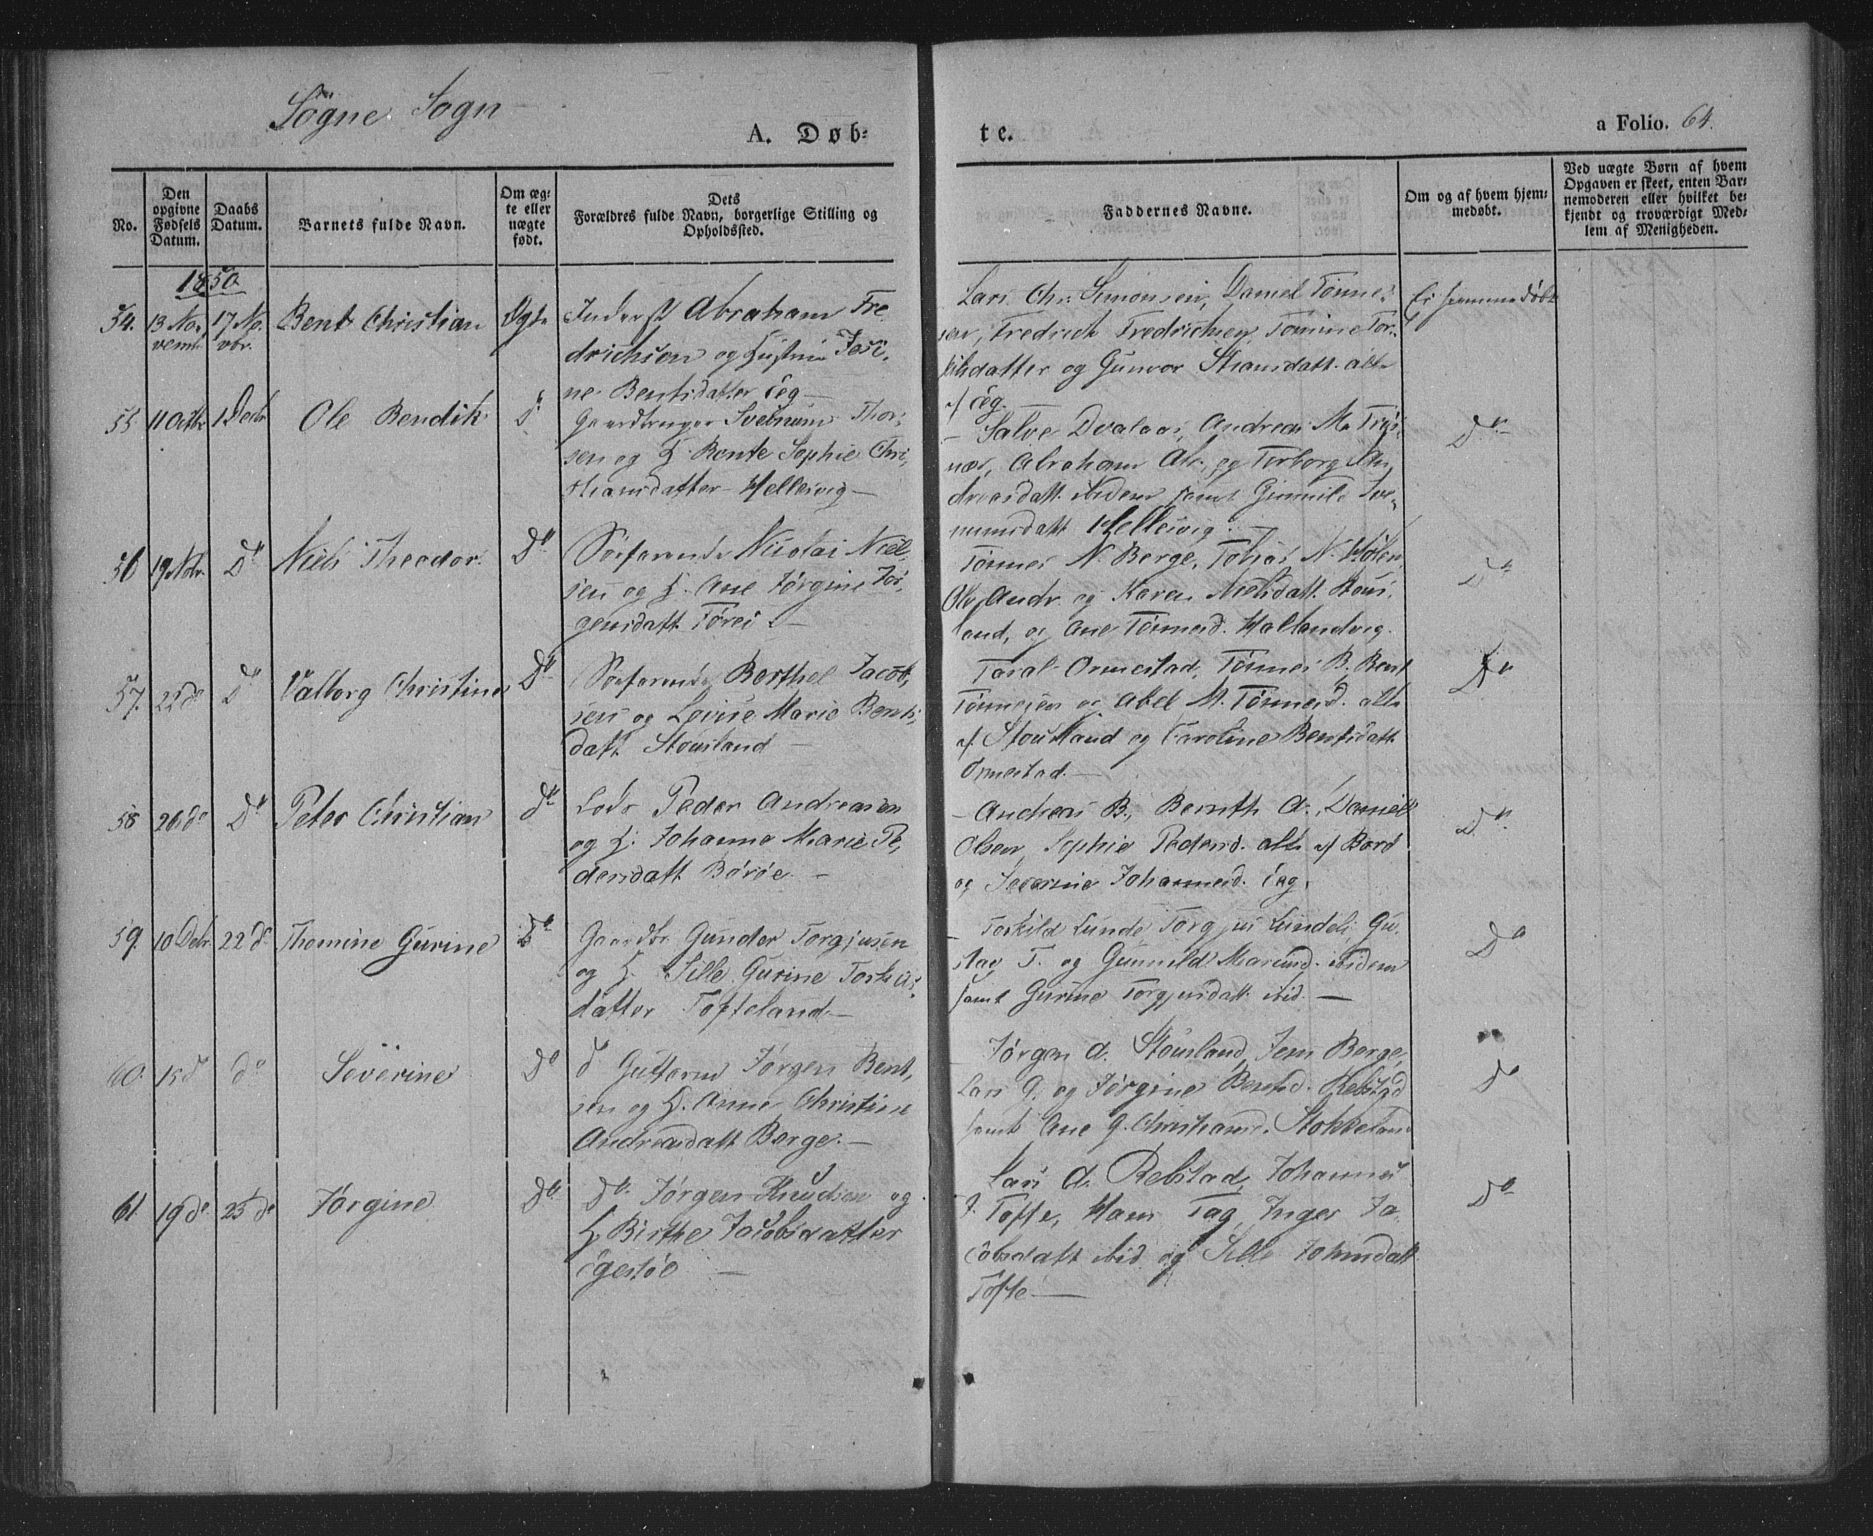 Søgne Sogn
A. Døb-
te.
a Folio. 64.
No.
Den opgivne Fødsels Datum.
Daabs Datum.
Barnets fulde Navn.
Om æg-
te eller
nægte
født.
Dets
Forældres fulde Navn, borgerlige Stilling og
Opholdssted.
Faddernes Navne.
Om og af hvem hjem-
medøbt.
Ved uægte Børn af hvem
Opgaven er skeet, enten Bar-
nemoderen eller hvilket be-
kjendt og troværdigt Med-
lem af Menigheden.
1850
54. 13 No- 17 No-
vemb. vbr.
Bent Christian
Ægte
Inderst Abraham Fre
drichsen og Hustru Josi-
ne Bentsdatter Eeg —
Lars Chr. Simonsen, Daniel Tønne-
sen, Fredrick Fredrichsen, Tomine Tor-
kildsdatter og Gunvor Stiansdatt. alle
af Eeg. —
Ei hjemmedøbt
55 11 Octbr 1 Decbr
Ole Bendik
D°
Gaardbruger Svennum Thor-
sen og H. Bente Sophie Chri-
stiansdatter Hellesvig —
Salve Dvalaas, Andreas M. Try-
næs, Abraham Abr. og Torborg An-
dreasdatt. ibidem samt Gunnild Sve-
numsdatt Hellesvig. —
D°
56 19 Nobr. D°
Niels Theodor.
D°
Søefarende Nicolai Niel-
sen og H. Ane Jørgine Jør-
gensdatt Tørres. —
Tønnes N. Berge, Tobias N. Holen,
Ole Andr. og Karen Nielsdatt. Stous-
land, og Ane Tønnesd. Hallandvig.
D°
57. 22 d° D°
Valborg Christine
D°
Søefarende Berthel Jacob-
sen og Lovise Marie Bents-
datt Stousland —
Taral Ormestad, Tønnes B., Bent
Tønnesen og Abel M. Tønnesd. alle
af Stousland og Caroline Bentsdatt
Ormestad. —
D°
58 26 d° D°
Peter Christian
d°
Lods Peder Andreasen
og H. Johanne Marie Pe-
dersdatt Børøe. —
Andreas B., Bernth A., Daniel
Olsen, Sophie Pedersd. alle af Borø
og Severine Johannesd. Eeg.
D°
59. 10 Debr. 22 d°
Thomine Gurine
D°
Gaardbr Gunder Torgjusen
og H. Sille Gurine Torkils-
datter Tofteland —
Torkild Lunde, Torgjus Lunde, Gu-
stav T. og Gunnild Mariusd. ibidem
samt Gurine Torgjusdatt ibid. —
D°
60. 15 d° d°
Severine
D°
d° Guttorm Jørgen Bent-
sen og H. Anne Christine
Andreasdatt Berge. —
Jørgen A. Stousland, Jens Berge,
Lars G. og Jørgine Berntsd. Rebstad
samt Ane G. Christiansd. Stokkeland
D°
61. 19 d° 25 d°
Jørgine
D°
D° Jørgen Knudsen og
H Birthe Jacobsdatter
Egestøe —
Lars A. Rebstad, Johannes
J. Tofte, Hans Tag, Inger Ja-
cobsdatt ibid og Sille Johnsdatt
Tofte —
D°